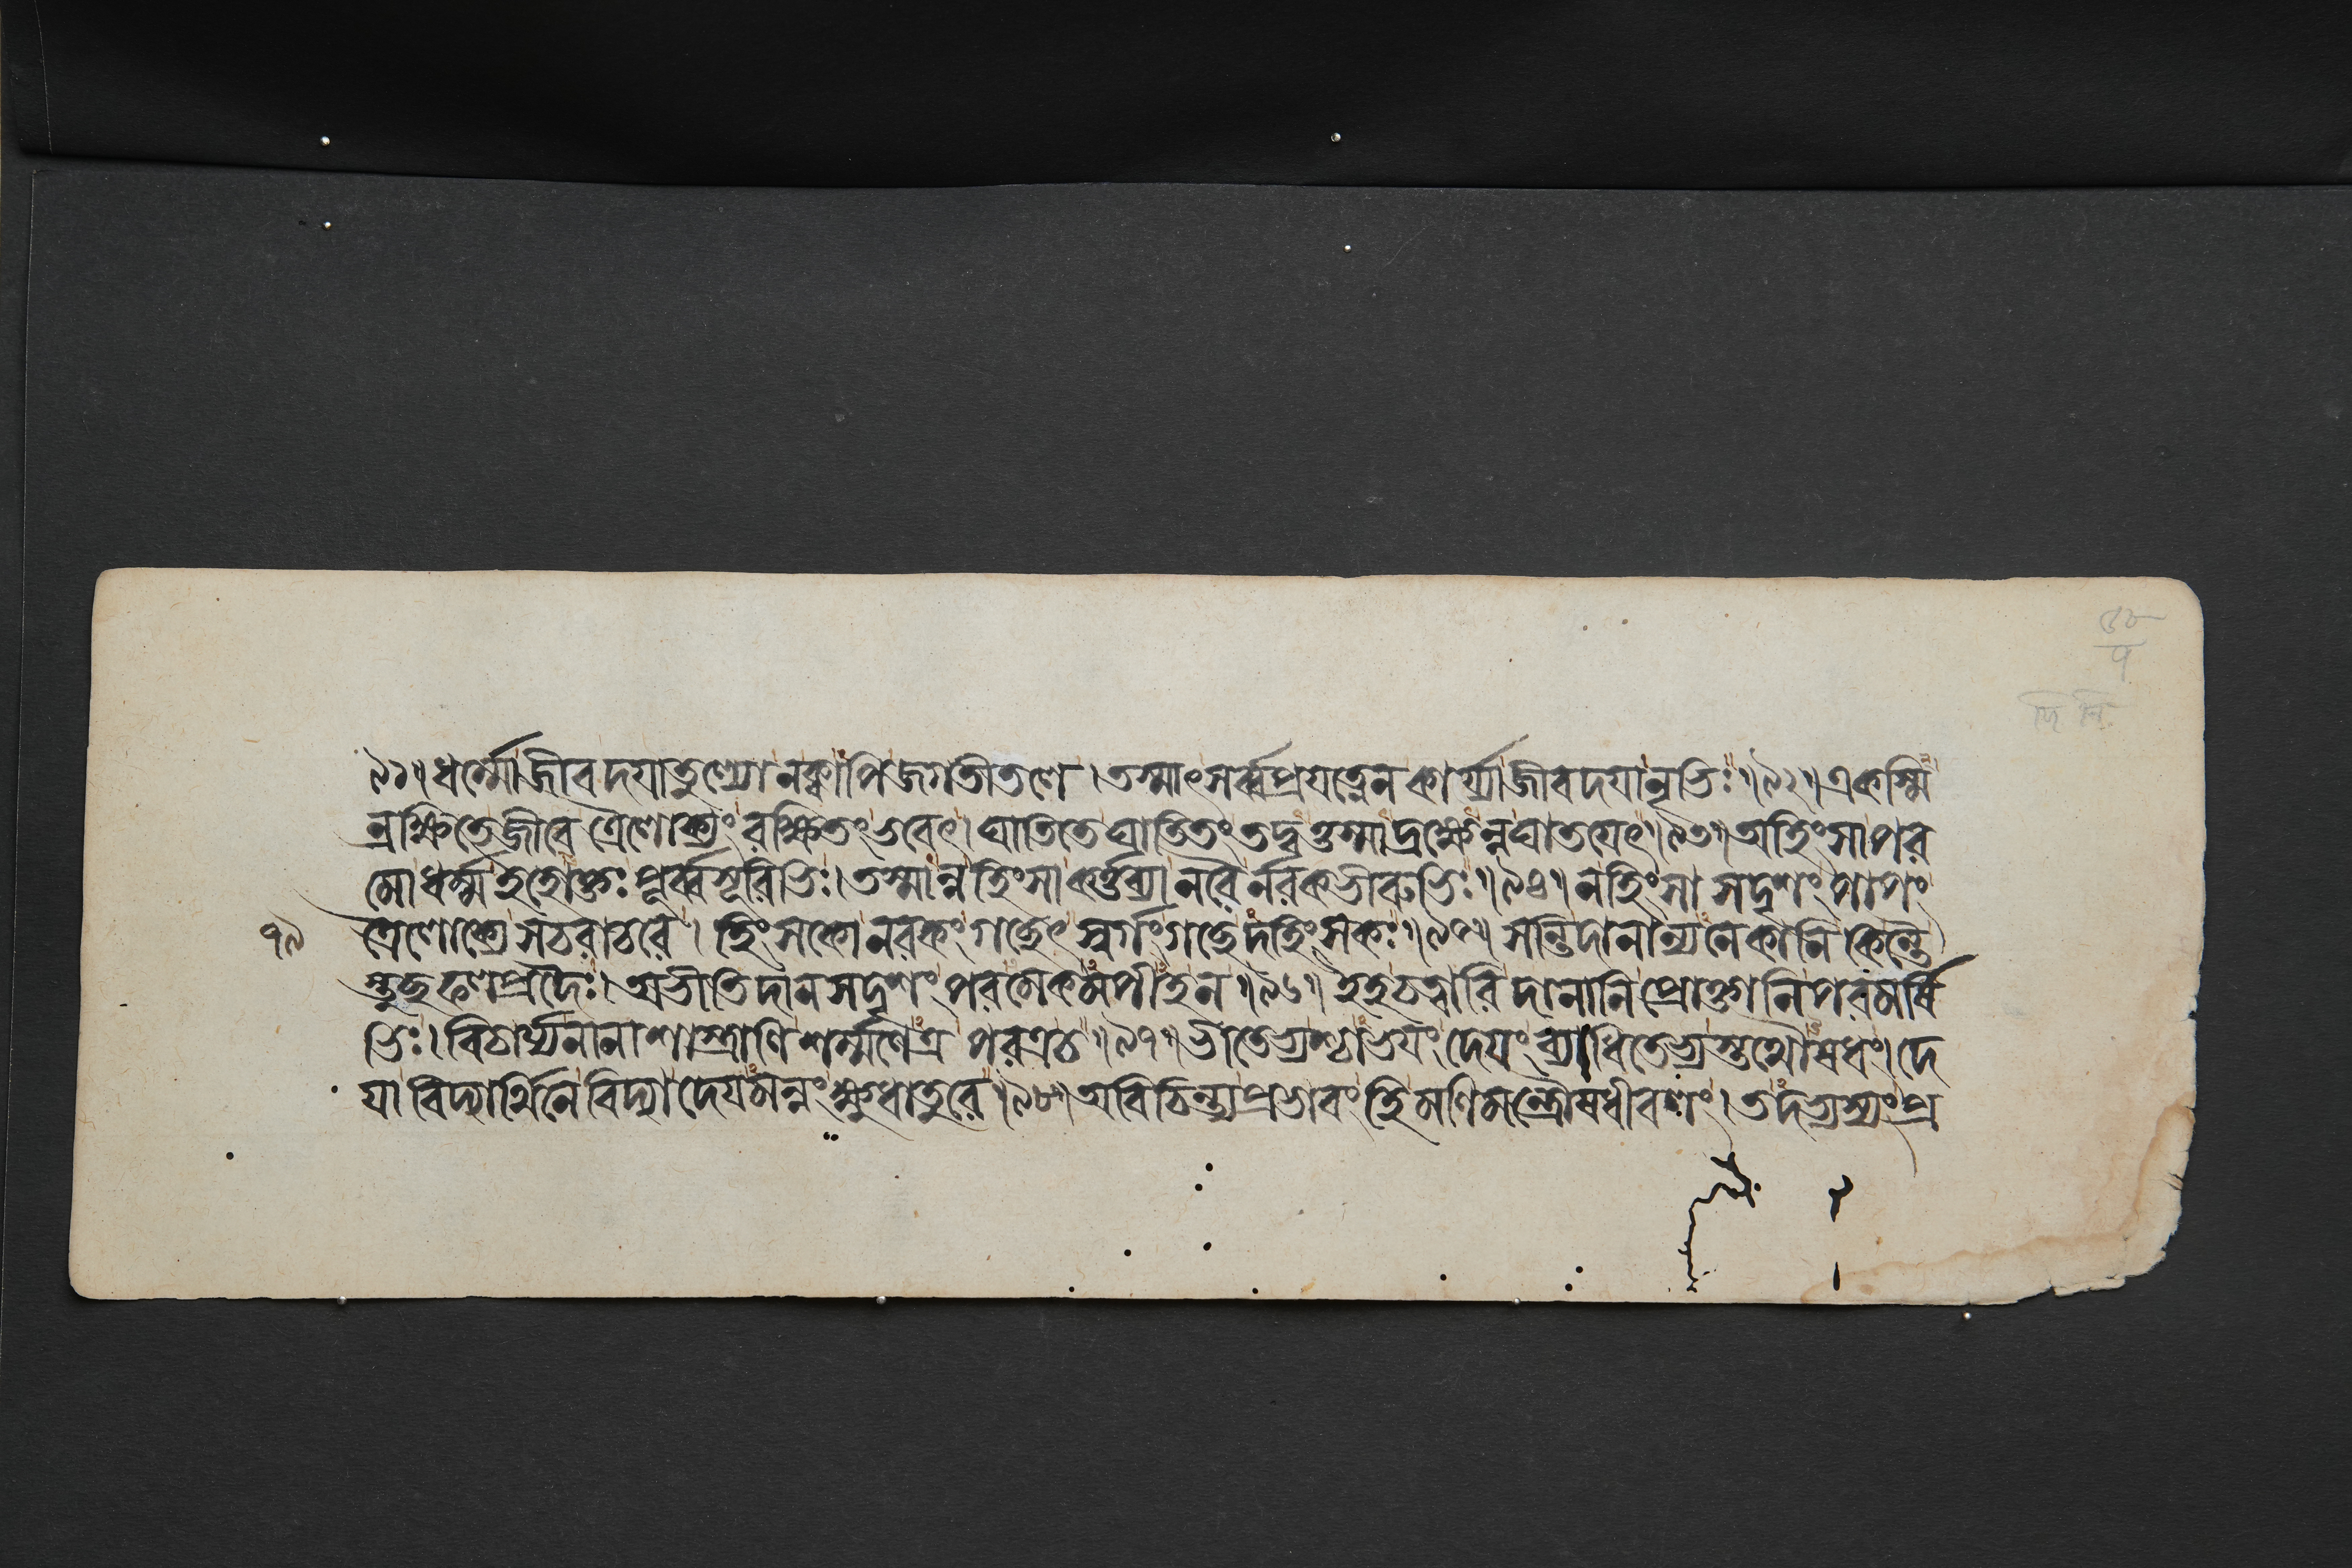 ৯১॥ধর্ম্মোজীবদযাতুল্যোনক্বাপিজগতীতলে।তস্মাৎসর্ব্বপ্রযত্নেনকার্য্যাজীবদযানৃভিঃ॥৯২॥একস্মি
ন্রক্ষিতেজীবেত্রৈলোক্যংরক্ষিতংভবেৎ।ঘাতিতেঘাতিতংতদ্বত্তস্মাদ্রক্ষেন্নঘাতযেৎ॥৯৩॥অহিংসাপর
মোধর্ম্মইহোক্তঃপূর্ব্বসূরিভিঃ।তস্মান্নহিংসাকর্ত্তব্যানরৈর্নরকভীরুভিঃ॥৯৪॥নহিংসাসদৃশংপাপং
ত্রৈলোক্যেসচরাচরে।হিংসকোনরকংগচ্ছেৎস্বর্গংগচ্ছেদহিংসকঃ॥৯৫॥সন্তিদানান্যনেকানিকিন্তৈ
৭৯
স্তুচ্ছফলপ্রদৈঃ।অভীতিদানসদৃশংপরমেকমপীহন॥৯৬॥ইহচত্বারিদানানিপ্রোক্তানিপরমর্ষি
ভিঃ।বিচার্য্যনানাশাস্ত্রাণিশর্ম্মণেত্রপরত্রচ॥৯৭॥ভীতেভ্যশ্চাভযংদেযংব্যাধিতেভ্যস্তথৌষধং।দে
যাবিদ্যার্থিনেবিদ্যাদেযমন্নংক্ষুধাতুরে॥৯৮॥অবিচিন্ত্যপ্রভাবংহিমণিমন্ত্রৌষধীবলং।তদভ্যস্যংপ্র